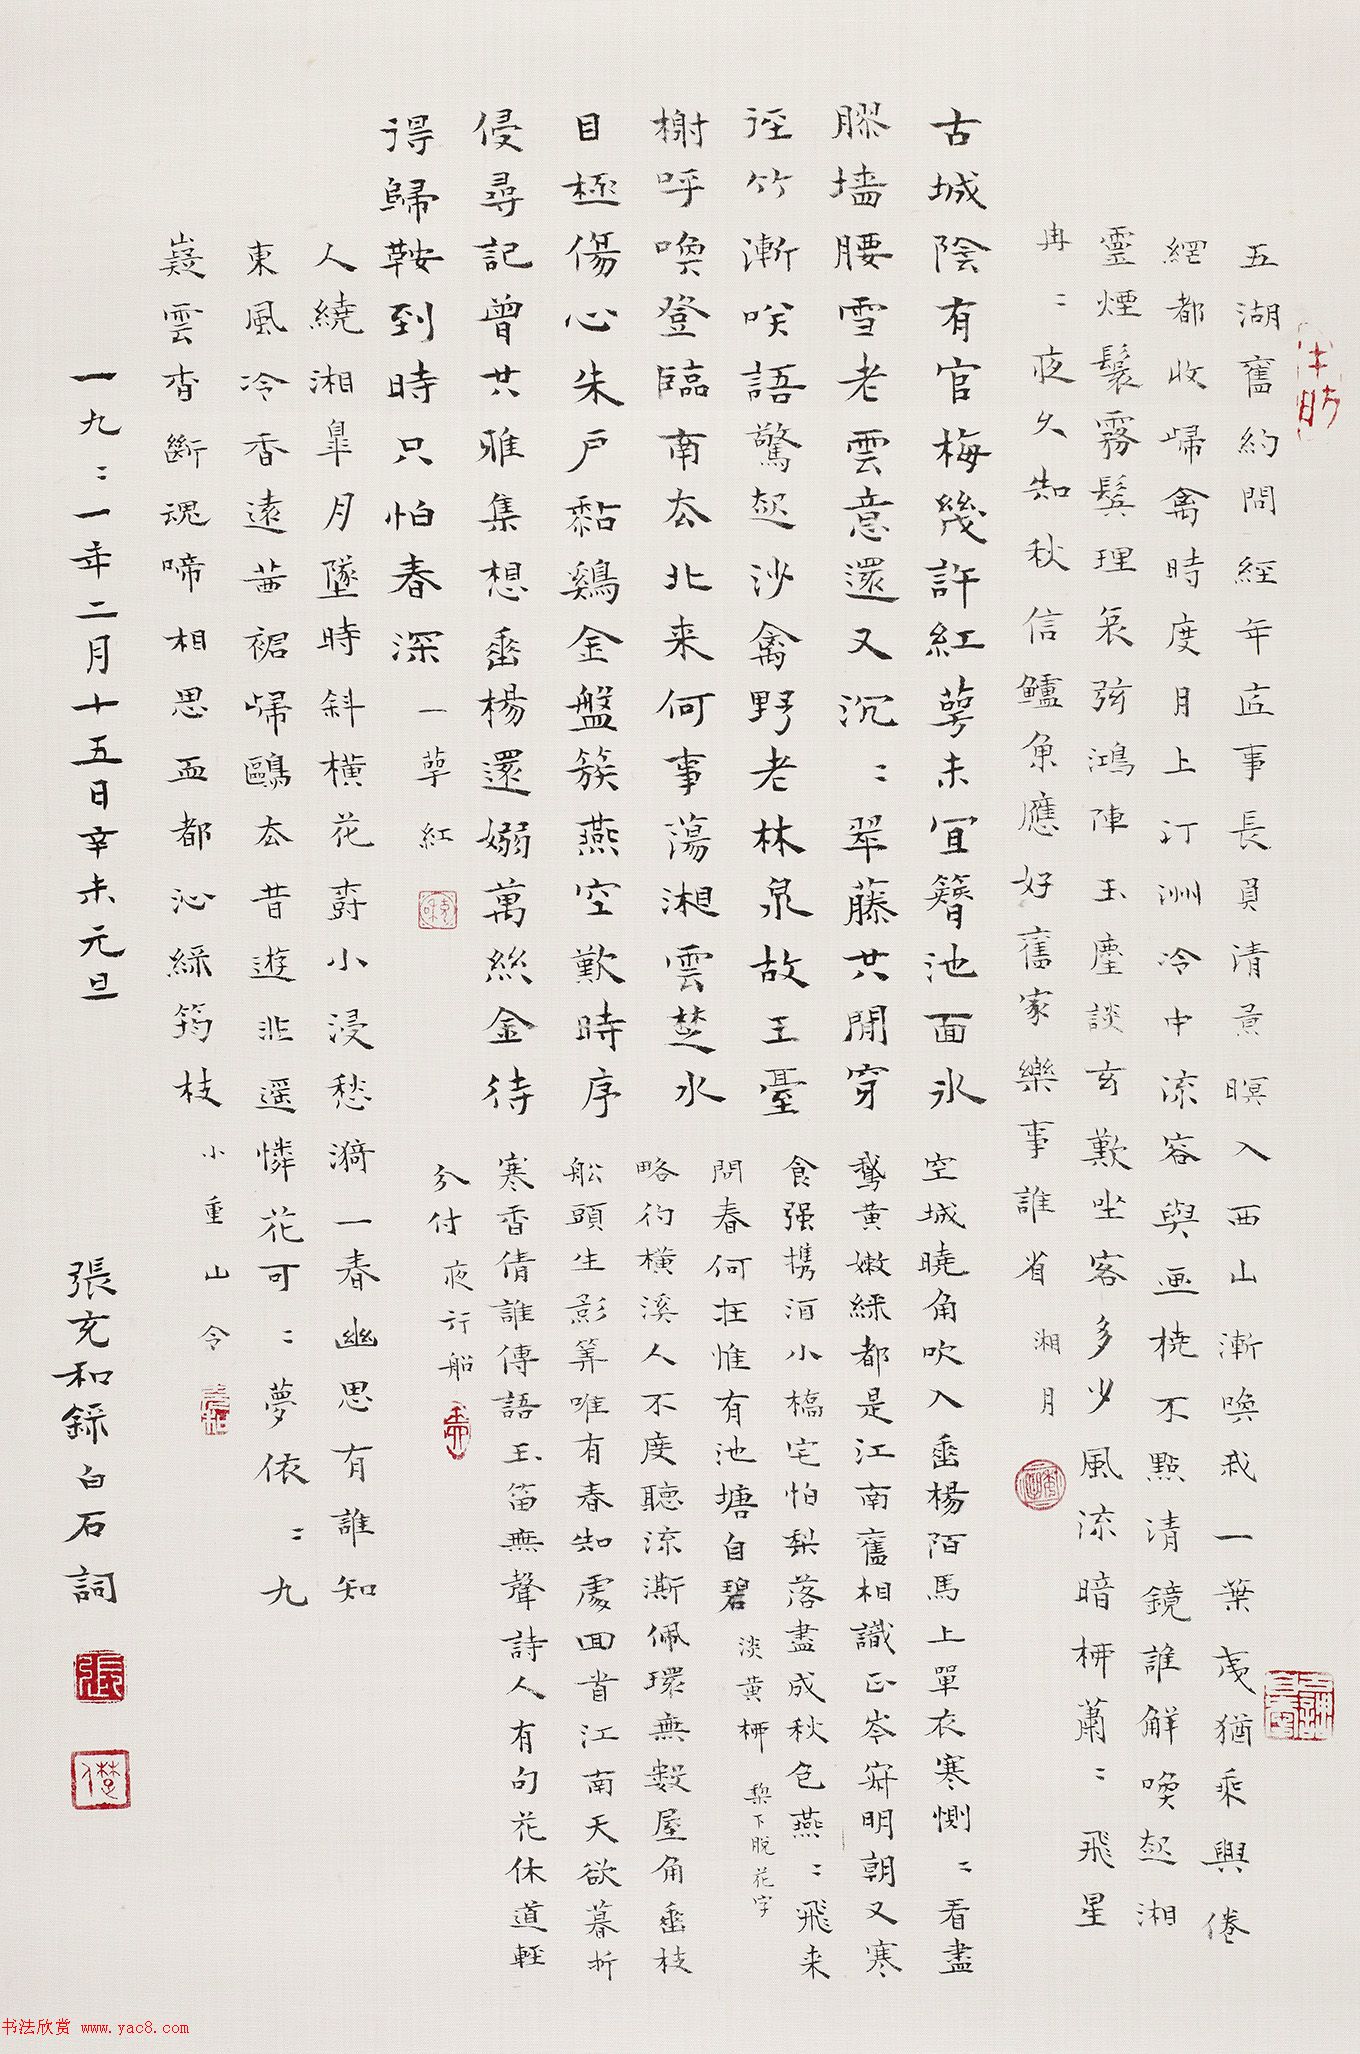 五湖舊約問經年底事長負清景暝入西山漸喚我一葉夷猶乘興倦
網都收歸禽時度月上汀洲冷中流容與画橈不點清鏡誰解喚起湘
靈煙鬟霧鬢理哀弦鴻陣玉麈談玄歎坐客多少風流暗柳蕭〻飛星
冉〻夜久知秋信鱸魚應好舊家樂事誰省 湘月
古城陰有官梅幾許紅萼未宜簪池面冰
膠墻腰雪老雲意還又沉〻翠藤共閒穿
徑竹漸咲語驚起沙禽野老林泉故王臺
榭呼喚登臨南去北来何事蕩湘雲楚水
目極傷心朱戶黏鷄金盤簇燕空歎時序
侵尋記曾共雅集想垂楊還嫋萬絲金待
得歸鞍到時只怕春深 一萼紅
空城曉角吹入垂楊陌馬上單衣寒惻〻看盡
鵞黄嫩綠都是江南舊相識正岑寂明朝又寒
食强携酒小橋宅怕梨落盡成秋色燕〻飛来
問春何在惟有池塘自碧 淡黄柳 梨下脫花字
略彴橫溪人不度聽流澌佩環無數屋角垂枝
舩頭生影筭唯有春知處回首江南天欲暮折
寒香倩誰傳語玉笛無聲詩人有句花休道輕
分付 夜行船
人繞湘皐月墜時斜橫花尌小浸愁漪一春幽思有誰知
東風冷香遠茜裙歸鷗去昔遊非遥憐花可〻夢依〻九
嶷雲杳斷魂啼相思血都沁綠筠枝 小重山令
一九〻一年二月十五日辛未元旦
張充和錄白石詞
书法欣赏 www.yac8.com